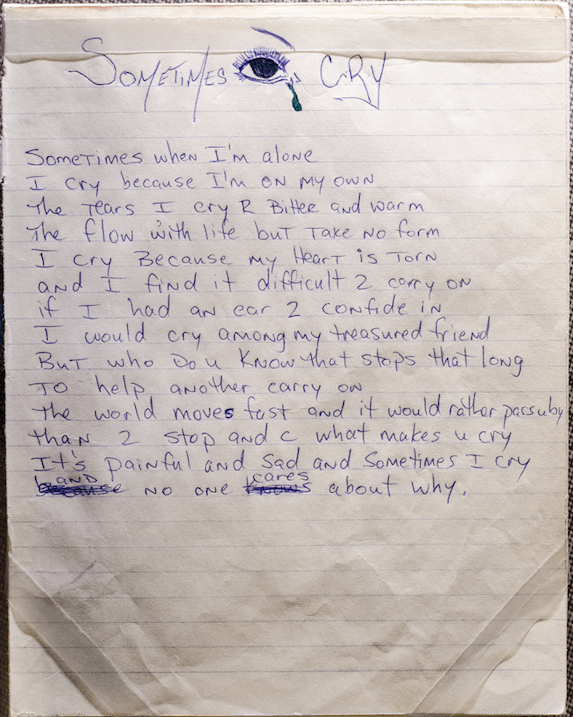 Sometimes 👁 Cry
Sometimes when I'm alone
I cry because I'm on my own
The Tears I cry R Bitter and warm
The flow with life but Take No form
I cry Because my Heart is Torn
and I find it difficult 2 carry on
if I had an ear 2 confide in
I would cry among my treasured friend
But who Do u Know that stops that long
To help another carry on
The world moves fast and it would rather pass u by
than 2 stop and c what makes u cry
It's painful and sad and Sometimes I cry
and no one cares about why.